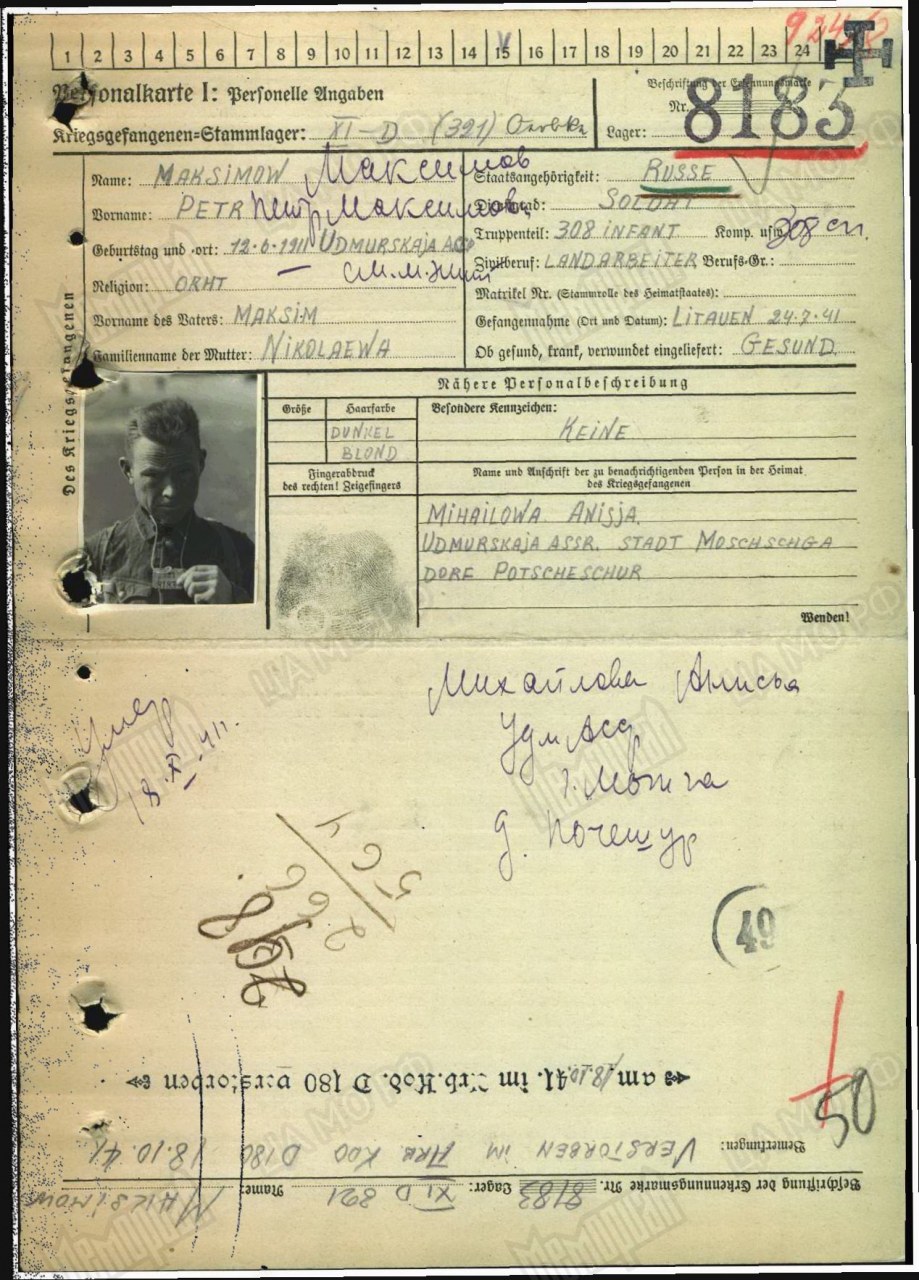 9245
1 2 3 4 5 6 7 8 9 10 11 12 13 14 15 16 17 18 19 20 21 22 23 24
Personalkarte I: Personelle Angaben
Beschriftung der Erkennungsmarke
Nr. 8183
Kriegsgefangenen-Stammlager: XI-D (321) Oerbke
Lager:
Des Kriegsgefangenen
Name: MAKSIMOW Максимов
Vorname: PETR Петр Максимов.
Geburtstag und -ort: 12·6·1911 UDMURSKAJA ASSR
Religion: ORHT
Vorname des Vaters: MAKSIM
Familienname der Mutter: NIKOLAEWA
Staatsangehörigkeit: RUSSE
Dienstgrad: SOLDAT
Truppenteil: 308 INFANT Komp. usw.: 308 сп.
Zivilberuf: LANDARBEITER Berufs-Gr.:
Matrikel Nr. (Stammrolle des Heimatstaates):
Gefangennahme (Ort und Datum): LITAUEN 24·7·41
Ob gesund, krank, verwundet eingeliefert: GESUND
Nähere Personalbeschreibung
Größe Haarfarbe Besondere Kennzeichen:
DUNKEL
BLOND
KEINE
Fingerabdruck
des rechten! Zeigefingers
Name und Anschrift der zu benachrichtigenden Person in der Heimat
des Kriegsgefangenen
MIHAILOWA ANISJA
UDMURSKAJA ASSR. STADT MOSCHSCHGA
DORF POTSCHESCHUR
Wenden!
Михайлова Анисья
Удм Асср
г. Можга
д. Почешур
Умер
18.X-41г.
49
50
am 18.10. 41. im Arb.Kdo. D 180 verstorben
Bemerkungen: VERSTORBEN IM ARB. KDO D180 18.10.41
Beschriftung der Erkennungsmarke Nr. 8183 Lager: XI D 321 Name: MAKSIMOW
ЦАМО РФ
Мемориал